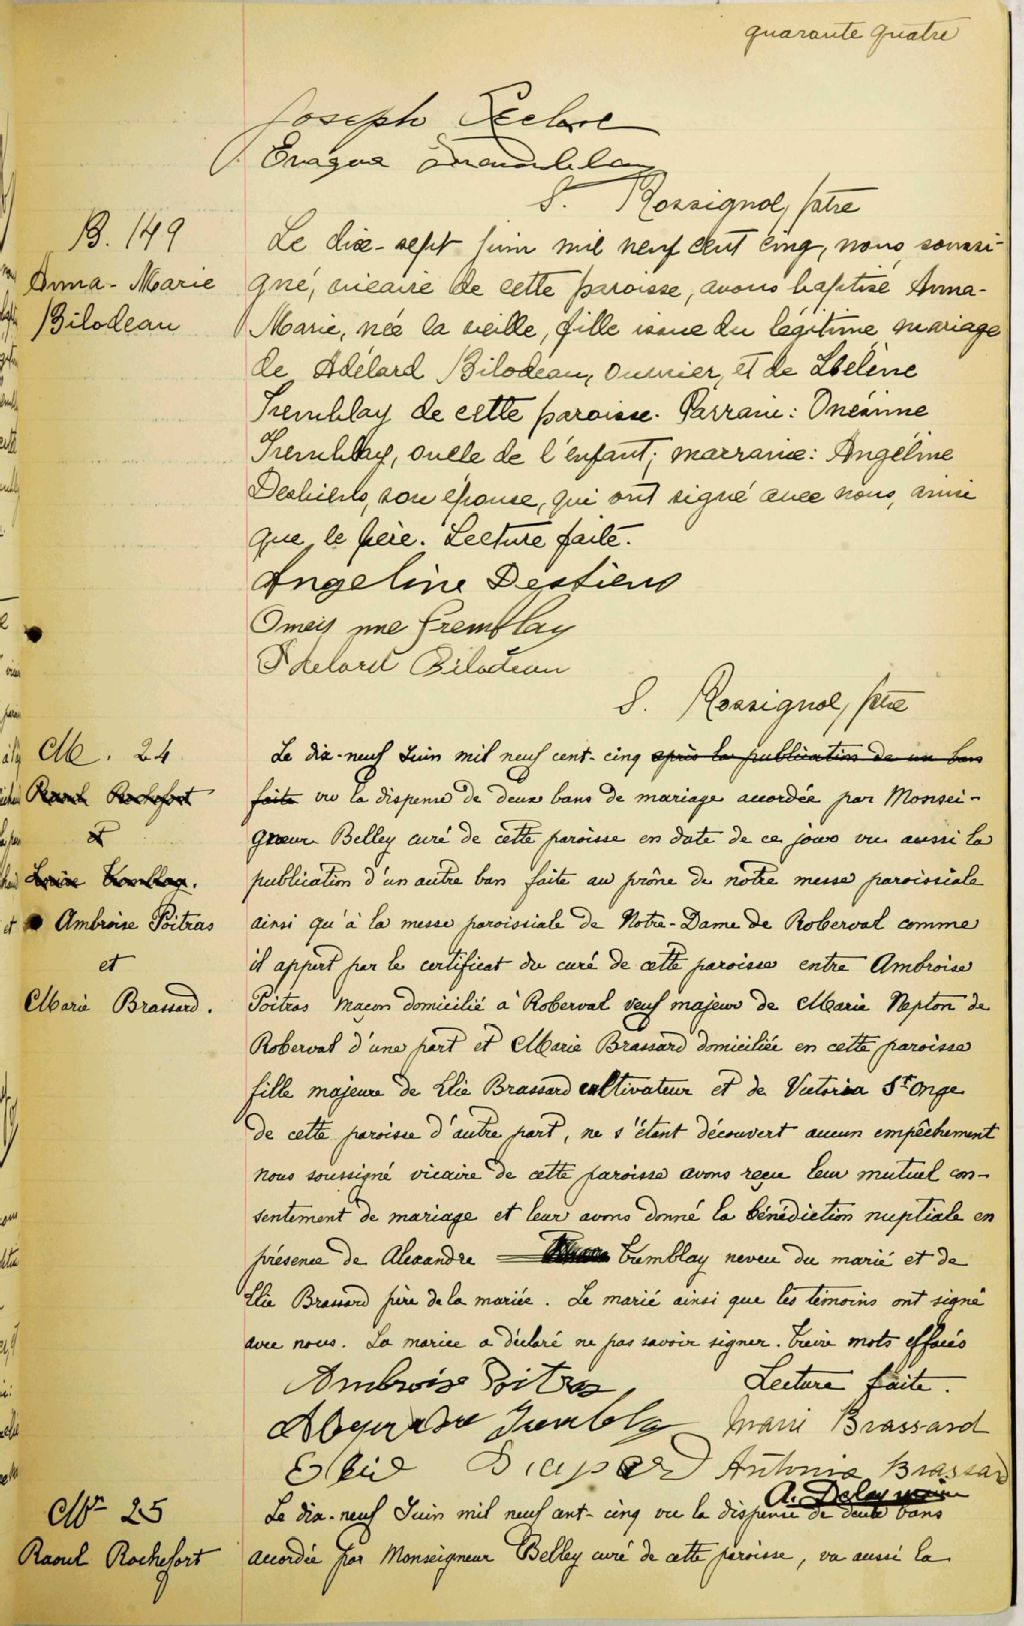 quarante quatre
Joseph Leclerc
S. Rossignol, ptre
B. 149
Anna-Marie
Bilodeau
Le dix-sept juin mil neuf cent cinq, nous, soussi-
gné, vicaire de cette paroisse, avons baptisé Anna-
Marie, née la veille, fille issue du légitime mariage
de Adélard Bilodeau, ouvrier, et de Hélène
Tremblay de cette paroisse. Parrain: Onésime
Tremblay, oncle de l'enfant; marraine: Angéline
Desbiens, son épouse, qui ont signé avec nous, ainsi
que le père. Lecture faite.
Angeline Desbiens
Tremblay
Adelard Bilodeau
S. Rossignol, ptre
M. 24
Raoul Rochefort
et
Tremblay.
Ambroise Poitras
et
Marie Brassard.
Le dix-neuf Juin mil neuf cent-cinq après la publication de un ban
faite vu la dispense de deux bans de mariage accordée par Monsei-
gneur Belley curé de cette paroisse en date de ce jour vu aussi la
publication d'un autre ban faite au prône de notre messe paroissiale
ainsi qu'à la messe paroissiale de Notre-Dame de Roberval comme
il appert par le certificat du curé de cette paroisse entre Ambroise
Poitras Maçon domicilié à Roberval veuf majeur de Marie Nepton de
Roberval d'une part et Marie Brassard domiciliée en cette paroisse
fille majeure de Elie Brassard cultivateur et de Victoria St Onge
de cette paroisse d'autre part, ne s'étant découvert aucun empêchement
nous soussigné vicaire de cette paroisse avons reçu leur mutuel con-
sentement de mariage et leur avons donné la bénédiction nuptiale en
présence de Alexandre Tremblay neveu du marié et de
Elie Brassard père de la mariée. Le marié ainsi que les témoins ont signé
avec nous. La mariee a déclaré ne pas savoir signer. treize mots effacés
Ambroise Poitras Lecture faite.
Tremblay Marie Brassard
Elie Antonio Brassard
A. Delay
Mn 25
Raoul Rochefort
Le dix-neuf Juin mil neuf cent-cinq vu la dispense de deux bans
accordée par Monseigneur Belley curé de cette paroisse, vu aussi la